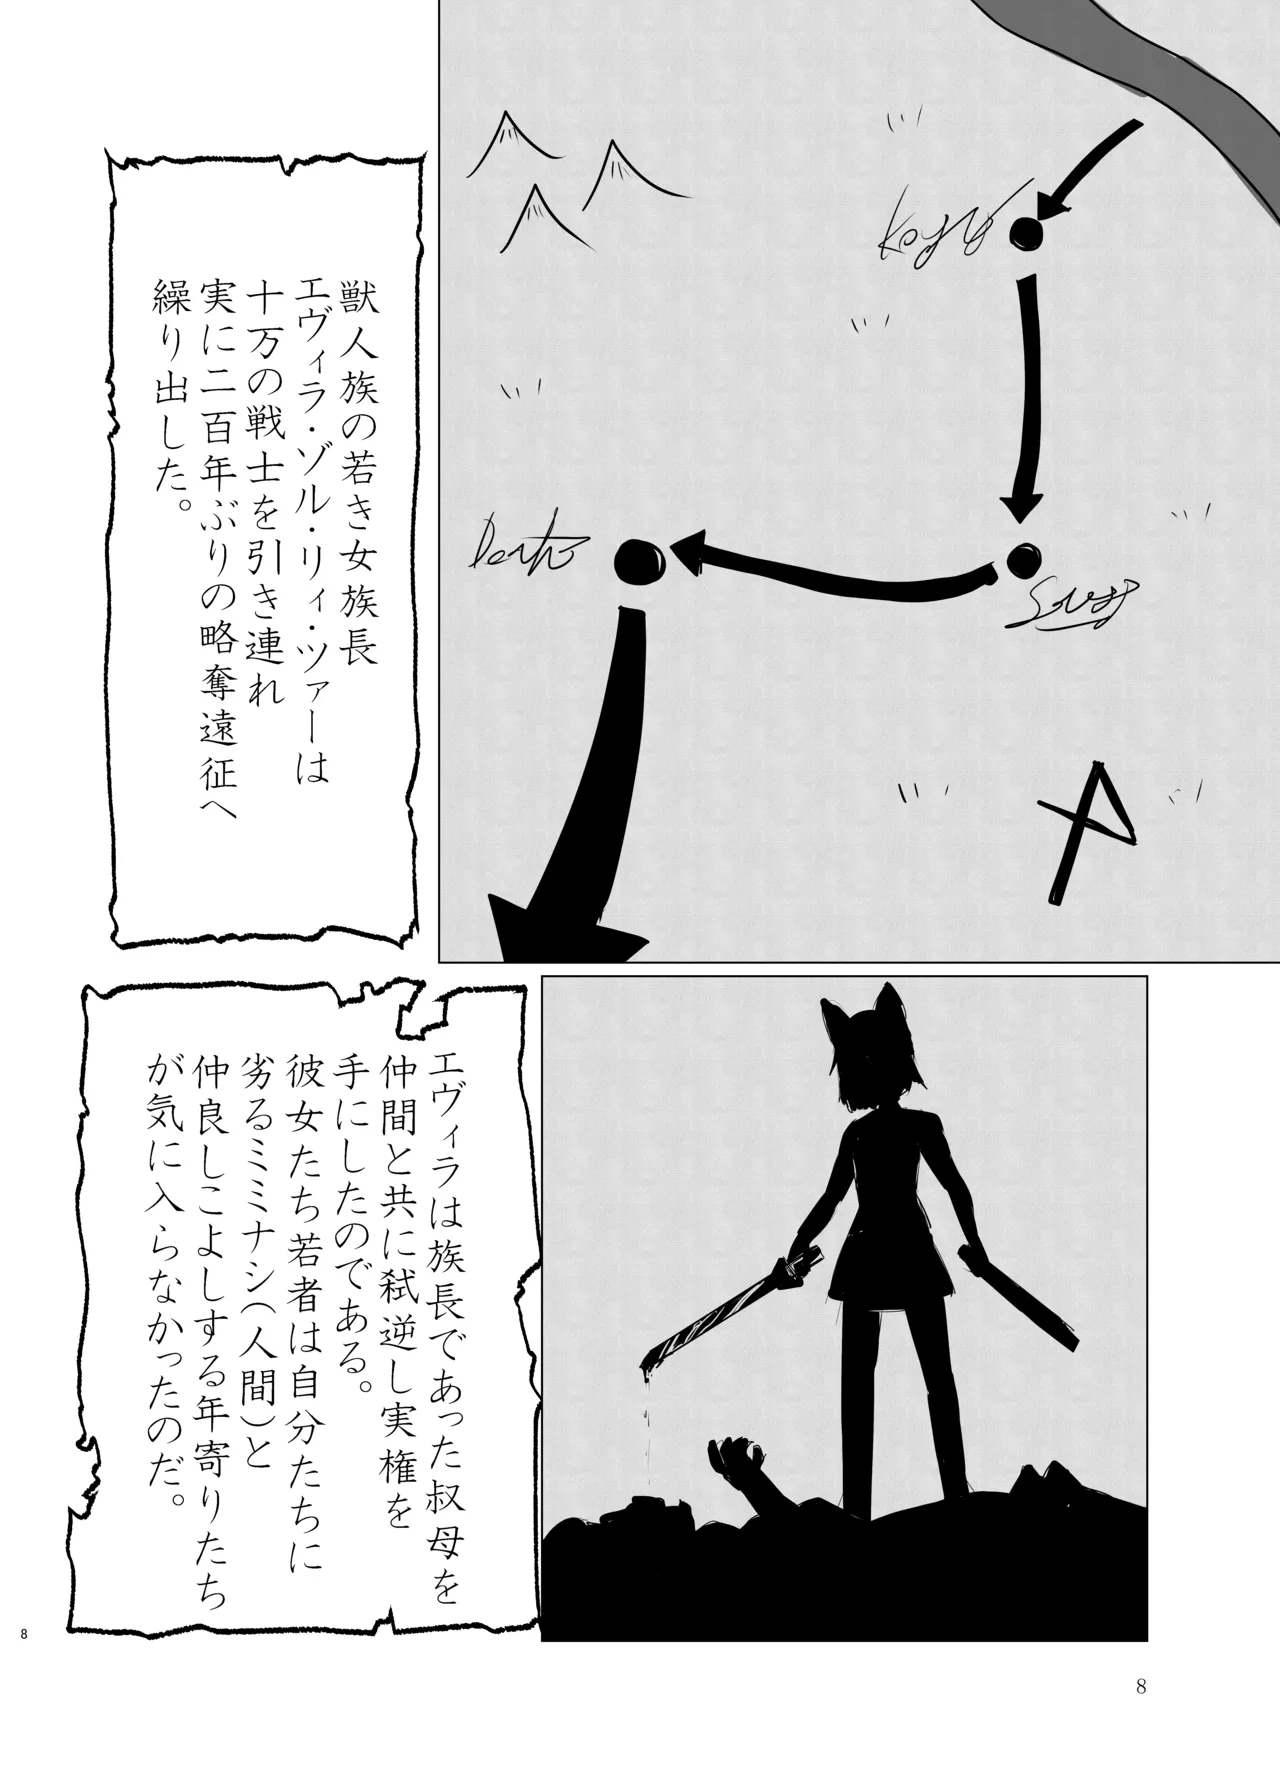 獣人族の若き女族長
エヴィラ・ゾル・リィ・ツァーは
十万の戦士を引き連れ
実に二百年ぶりの略奪遠征へ
繰り出した。
エヴィラは族長であった叔母を
仲間と共に弑逆し実権を
手にしたのである。
彼女たち若者は自分たちに
劣るミミナシ(人間)と
仲良しこよしする年寄りたち
が気に入らなかったのだ。
8
8